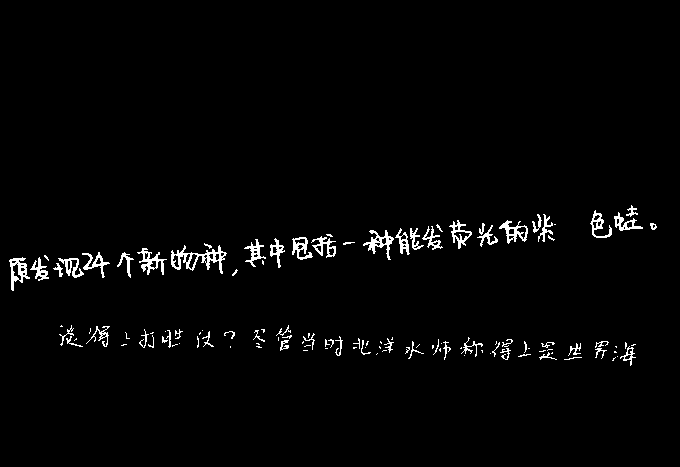 原发现24个新物种,其中包括一种能发荧光的紫 色蛙。
谈得上打胜仗?尽管当时北洋水师称得上是世界海